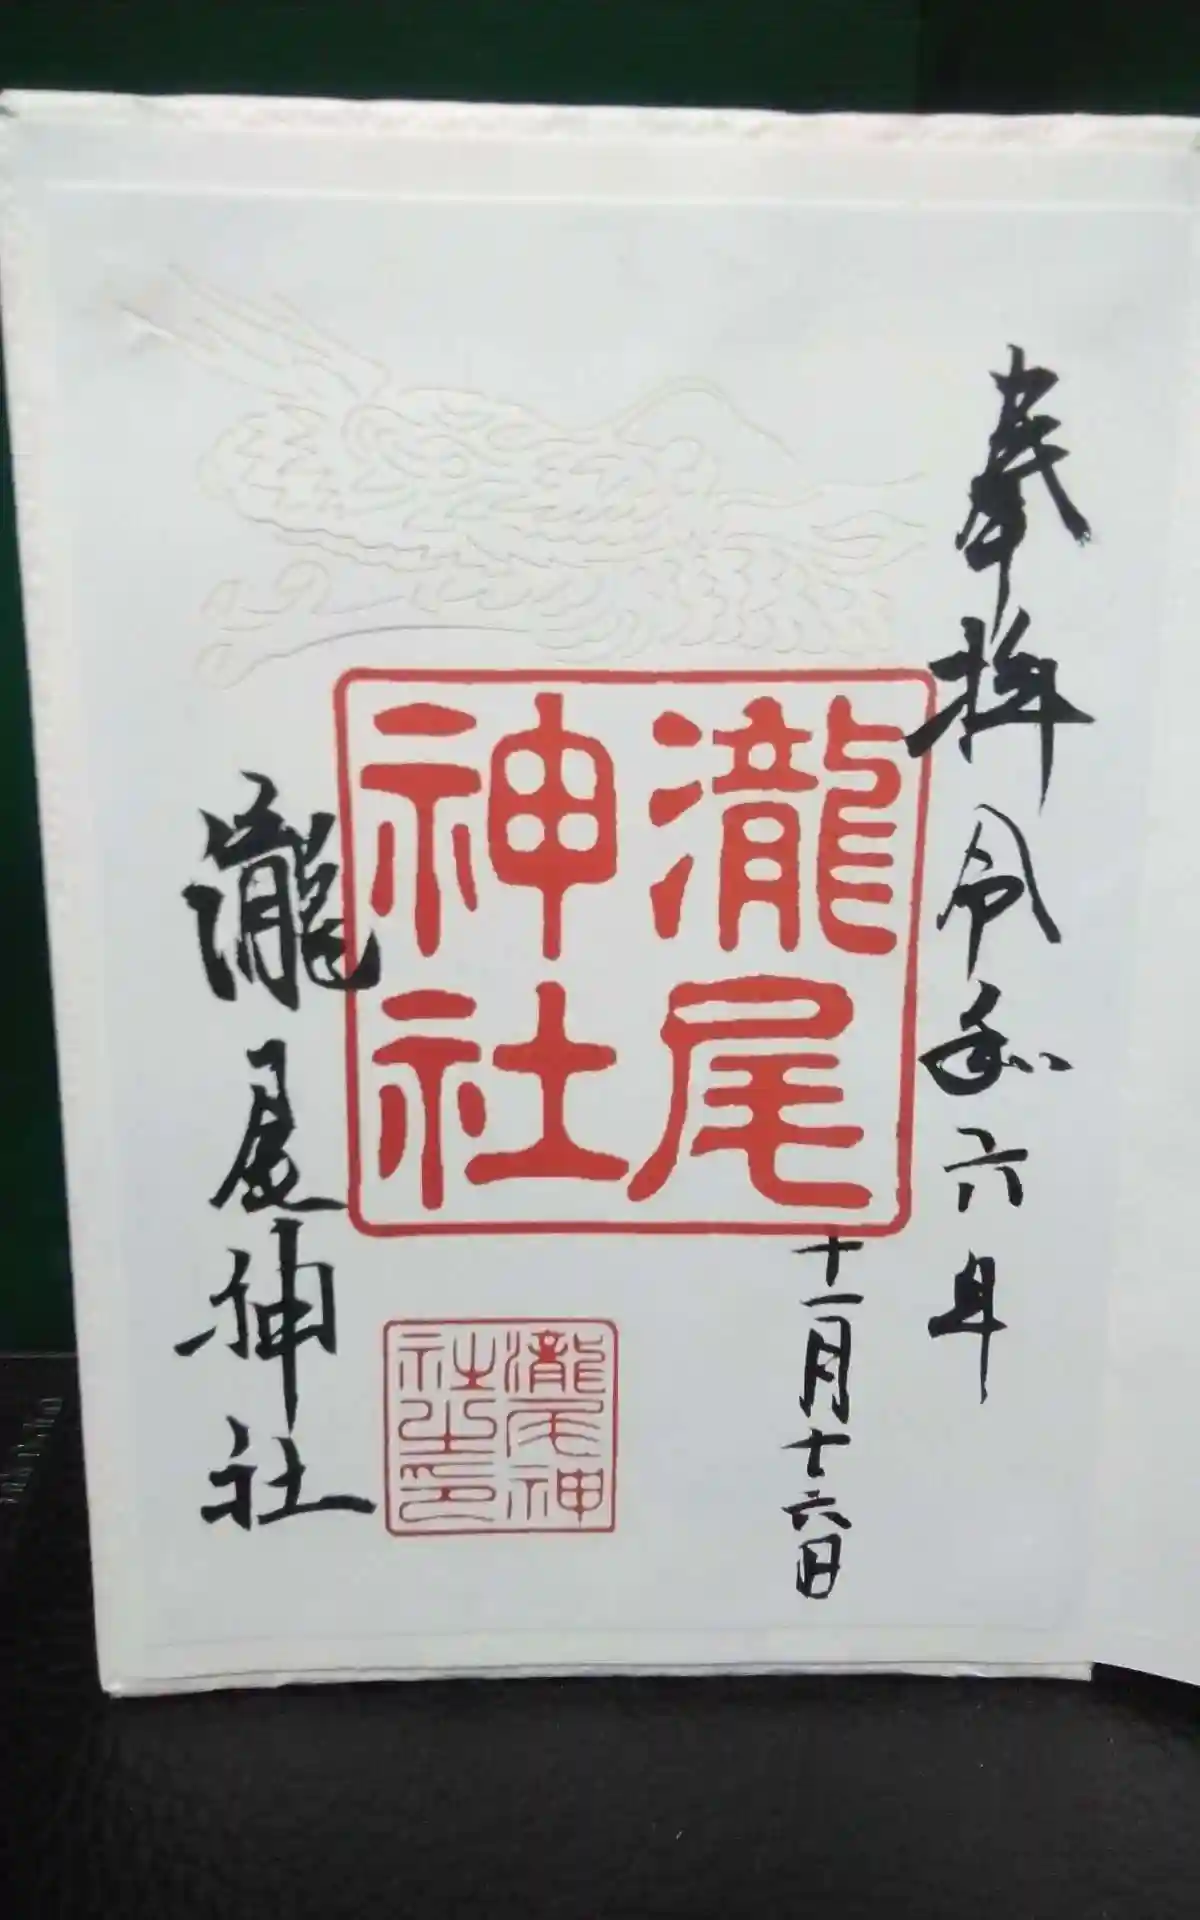 奉拝 令和六年
十一月十六日
瀧尾
神社
瀧尾神
社之印
瀧尾神社